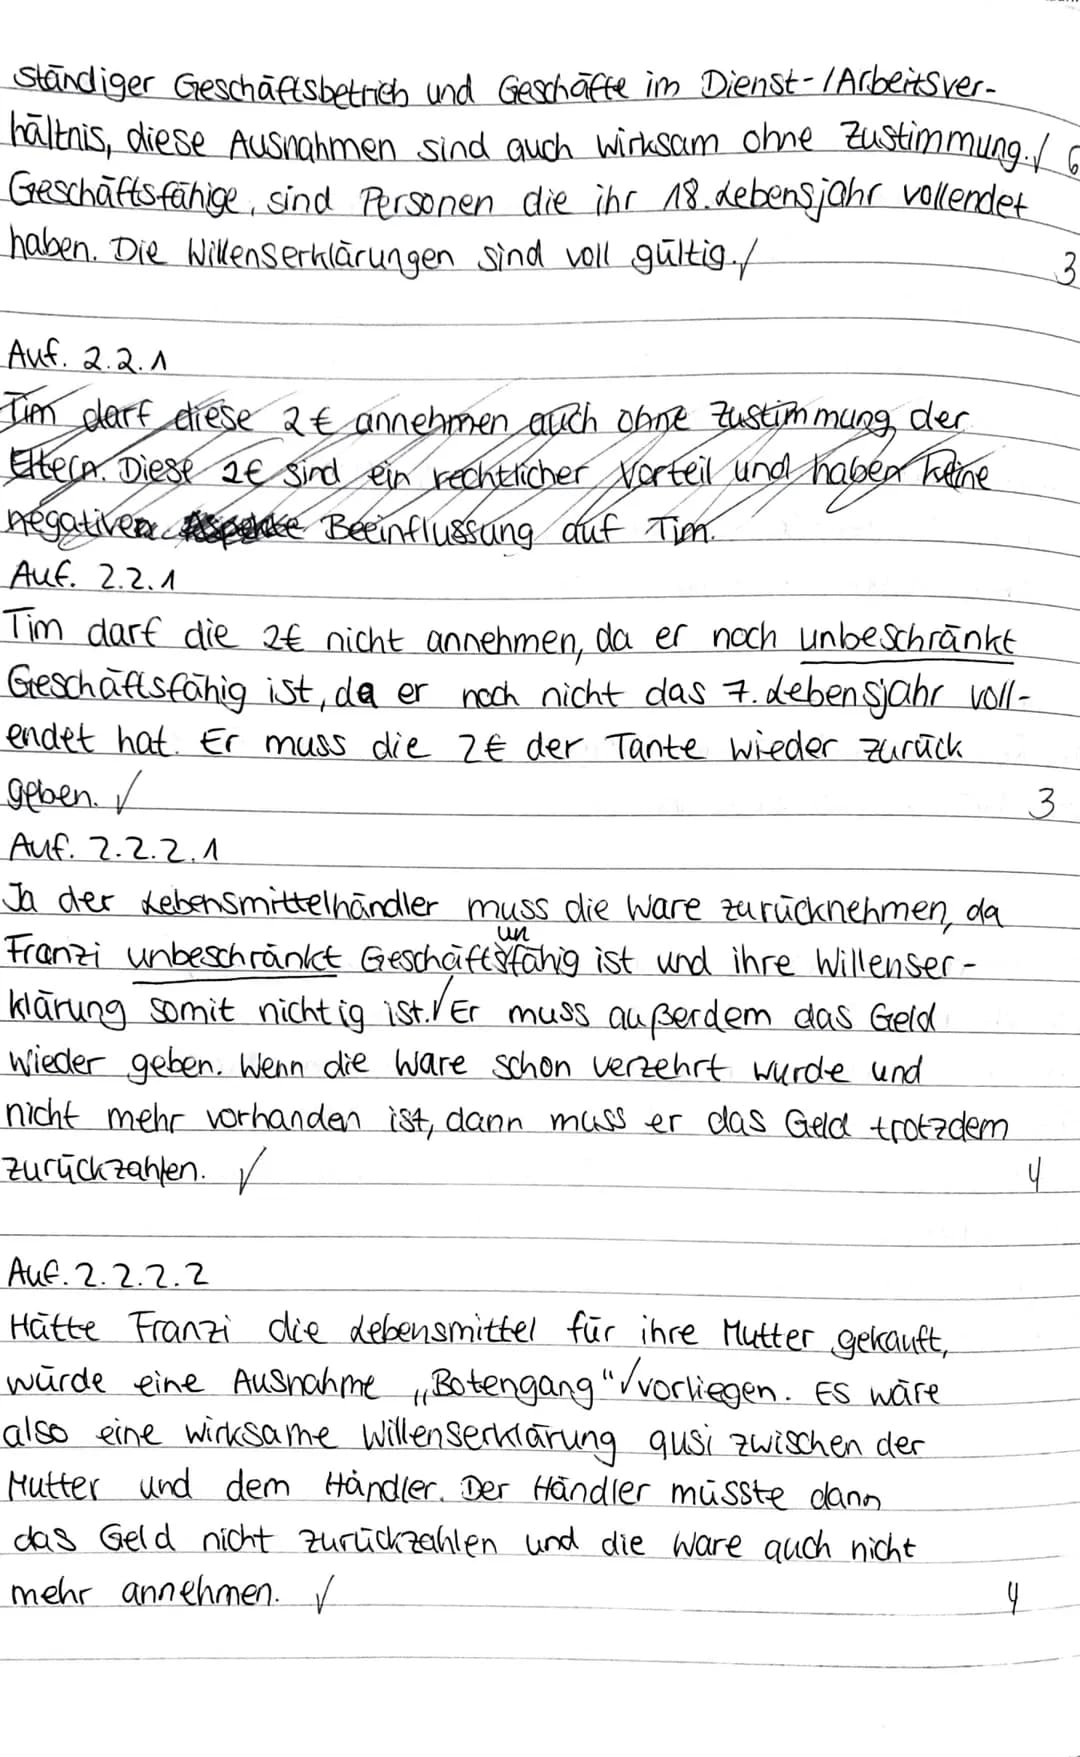 ständiger Geschäftsbetrieb und Geschäfte im Dienst-/Arbeitsver-
hältnis, diese Ausnahmen sind auch wirksam ohne Zustimmung.√ 6
Geschäftsfähige, sind Personen die ihr 18. Lebensjahr vollendet
haben. Die Willenserklärungen sind voll gültig.√ 3
Auf. 2.2.1
Tim darf diese 2€ annehmen auch ohne Zustimmung der
Eltern. Diese 2€ sind ein rechtlicher Vorteil und haben keine
negativen Aspekte Beeinflussung auf Tim.
Auf. 2.2.1
Tim darf die 2€ nicht annehmen, da er noch unbeschränkt
Geschäftsfähig ist, da er noch nicht das 7. Lebensjahr voll-
endet hat. Er muss die 2€ der Tante wieder zurück
geben. √ 3
Auf. 2.2.2.1
Ja der Lebensmittelhändler muss die Ware zurücknehmen, da
un
Franzi unbeschränkt Geschäftsfähig ist und ihre Willenser-
klärung somit nichtig ist.√ Er muss außerdem das Geld
wieder geben. Wenn die Ware schon verzehrt wurde und
nicht mehr vorhanden ist, dann muss er das Geld trotzdem
zurückzahlen. √ 4
Auf. 2.2.2.2
Hätte Franzi die Lebensmittel für ihre Mutter gekauft,
würde eine Ausnahme „Botengang"√ vorliegen. Es wäre
also eine wirksame Willenserklärung qusi zwischen der
Mutter und dem Händler. Der Händler müsste dann
das Geld nicht zurückzahlen und die Ware auch nicht
mehr annehmen. √ 4